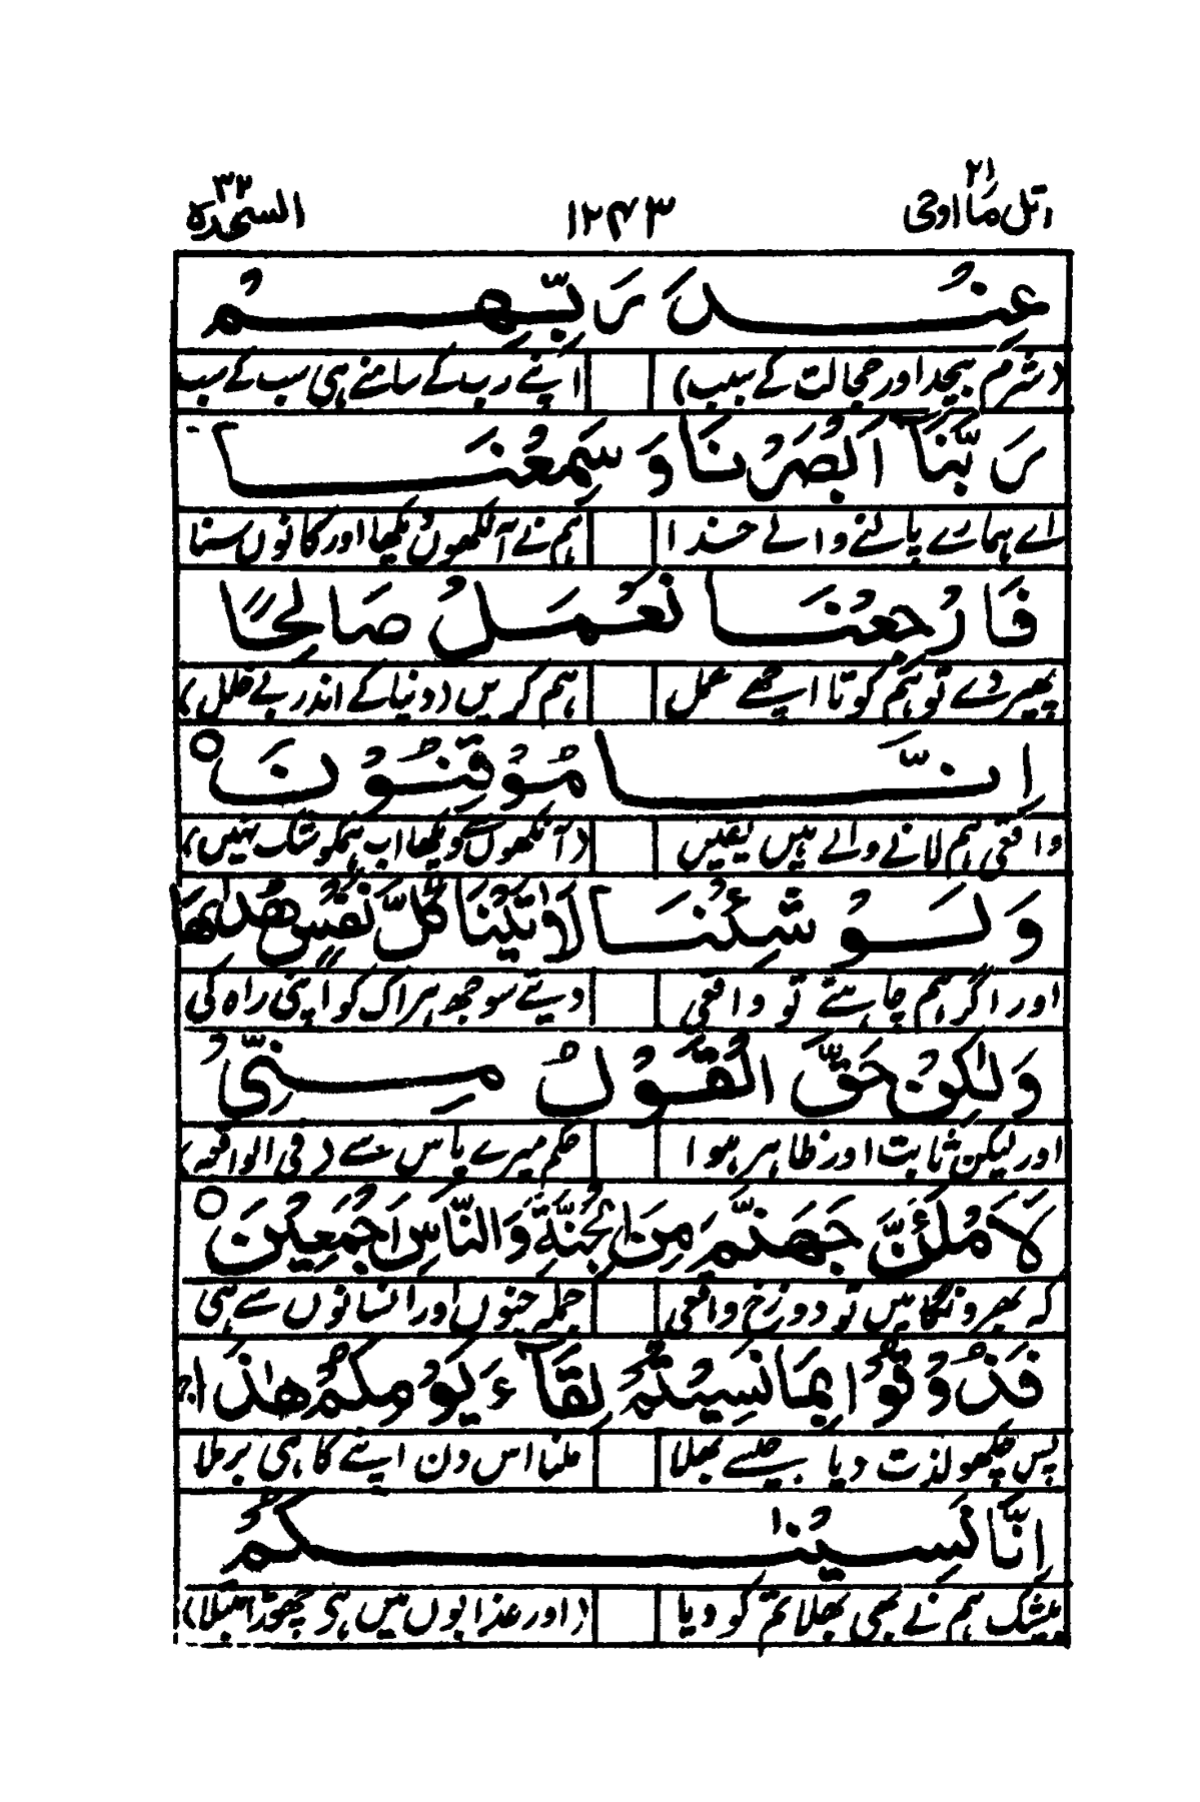 اتل مااوحی ۲۱ ۱۲۴۳ السجدہ ۳۲
عِنْدَ رَبِّهِمْ
(شرم بیحد اور خجالت کے سبب) اپنے رب کے سامنے ہی سب کے سب
رَبَّنَآ اَبْصَرْنَا وَسَمِعْنَا
اے ہمارے پالنے والے خدا ہم نے آنکھوں دیکھا اور کانوں سنا
فَارْجِعْنَا نَعْمَلْ صَالِحًا
پھیر دے تو ہم کو تا اچھے عمل ہم کریں (دنیا کے اندر بے خلل)
اِنَّا مُوْقِنُوْنَ ○
واقعی ہم لانے والے ہیں یقیں (آنکھوں سے دیکھا اب ہمکو شک نہیں)
وَلَوْ شِئْنَا لَاٰتَيْنَا كُلَّ نَفْسٍ هُدٰىهَا
اور اگر ہم چاہتے تو واقعی دیتے سوجھ ہر اک کو اپنی راہ کی
وَلٰكِنْ حَقَّ الْقَوْلُ مِنِّيْ
اور لیکن ثابت اور ظاہر ہوا حکم میرے پاس سے (فی الواقعہ)
لَاَمْلَئَنَّ جَهَنَّمَ مِنَ الْجِنَّةِ وَالنَّاسِ اَجْمَعِيْنَ ○
کہ بھرونگا میں تو دوزخ واقعی جملہ جنوں اور انسانوں سے ہی
فَذُوْقُوْا بِمَا نَسِيْتُمْ لِقَآءَ يَوْمِكُمْ هٰذَا ج
پس چکھو لذت دیا جیسے بھلا ملنا اس دن اپنے کا ہی برملا
اِنَّا نَسِيْنٰكُمْ
بیشک ہم نے بھی بھلا تم کو دیا (اور عذابوں میں ہی چھوڑا مبتلا)